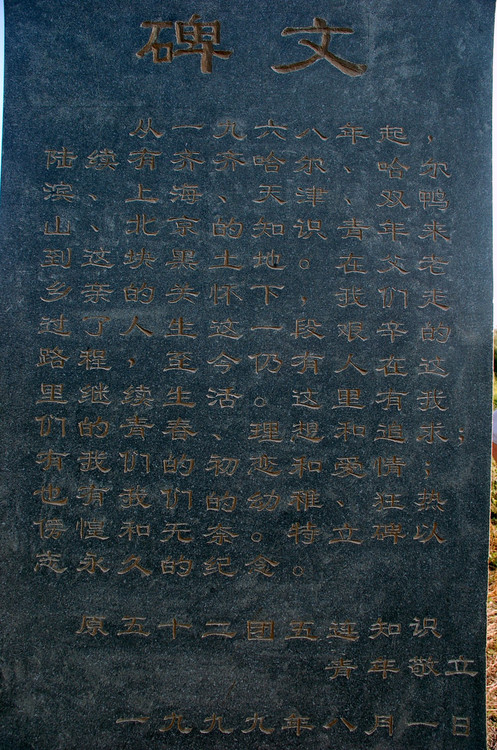 碑文
从一九六八年起，
陆续有齐齐哈尔、哈尔
滨、上海、天津、双鸭
山、北京的知识青年来
到这块黑土地。在父老
乡亲的关怀下，我们走
过了人生这一段艰辛的
路程，至今仍有人在这
里继续生活。这里有我
们的青春、理想和追求；
有我们的初恋和爱情；
也有我们的幼稚、狂热
傍惶和无奈。特立碑以
志永久的纪念。
原五十二团五连知识
青年敬立
一九九九年八月一日